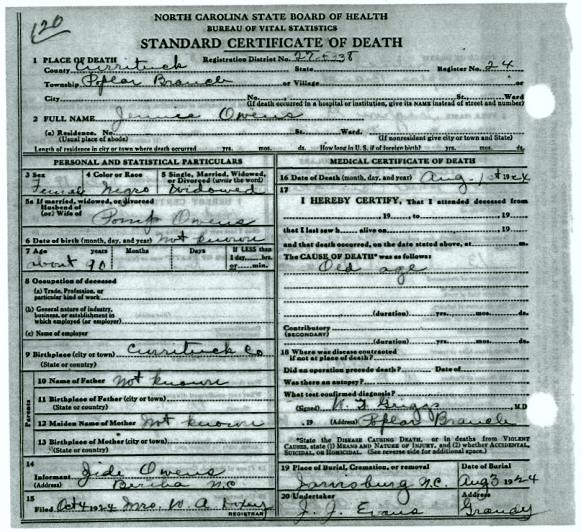 120
NORTH CAROLINA STATE BOARD OF HEALTH
BUREAU OF VITAL STATISTICS
STANDARD CERTIFICATE OF DEATH
1 PLACE OF DEATH Registration District No. 27-5-38
County Currituck State Register No. 24
Township Poplar Branch or Village or
City No. St. Ward
(If death occurred in a hospital or institution, give its NAME instead of street and number)
2 FULL NAME Owens
(a) Residence. No. St. Ward.
(Usual place of abode) (If nonresident give city or town and State)
Length of residence in city or town where death occurred yrs. mos. ds. How long in U. S. if of foreign birth? yrs. mos. ds.
PERSONAL AND STATISTICAL PARTICULARS
3 Sex 4 Color or Race 5 Single, Married, Widowed, or Divorced (write the word)
Female Negro Widowed
5a If married, widowed, or divorced
Husband of
(or) Wife of Pomp Owens
6 Date of birth (month, day, and year) not known
7 Age years Months Days If LESS than 1 day, hrs. or min.
about 90
8 Occupation of deceased
(a) Trade, Profession, or particular kind of work
(b) General nature of industry, business, or establishment in which employed (or employer)
(c) Name of employer
9 Birthplace (city or town) Currituck Co
(State or country)
Parents
10 Name of Father Not known
11 Birthplace of Father (city or town)
(State or country)
12 Maiden Name of Mother Not known
13 Birthplace of Mother (city or town)
(State or country)
14
Informant Owens
(Address) Bertha NC
15
Filed Oct 4 1924 Mrs. W A
REGISTRAR
MEDICAL CERTIFICATE OF DEATH
16 Date of Death (month, day, and year) Aug. 1st 1924
17
I HEREBY CERTIFY, That I attended deceased from
19 to 19
that I last saw h alive on 19
and that death occurred, on the date stated above, at m.
The CAUSE OF DEATH* was as follows:
Old age
(duration) yrs. mos. ds.
Contributory
(SECONDARY)
(duration) yrs. mos. ds.
18 Where was disease contracted
if not at place of death?
Did an operation precede death? Date of
Was there an autopsy?
What test confirmed diagnosis?
(Signed) Griggs M.D
, 19 (Address) Poplar Branch
*State the DISEASE CAUSING DEATH, or in deaths from VIOLENT
CAUSES, state (1) MEANS AND NATURE OF INJURY, and (2) whether ACCIDENTAL,
SUICIDAL, or HOMICIDAL. (See reverse side for additional space.)
19 Place of Burial, Cremation, or removal Date of Burial
Jarvisburg N.C. Aug 3 1924
20 Undertaker Address
J. J. Evans Grandy